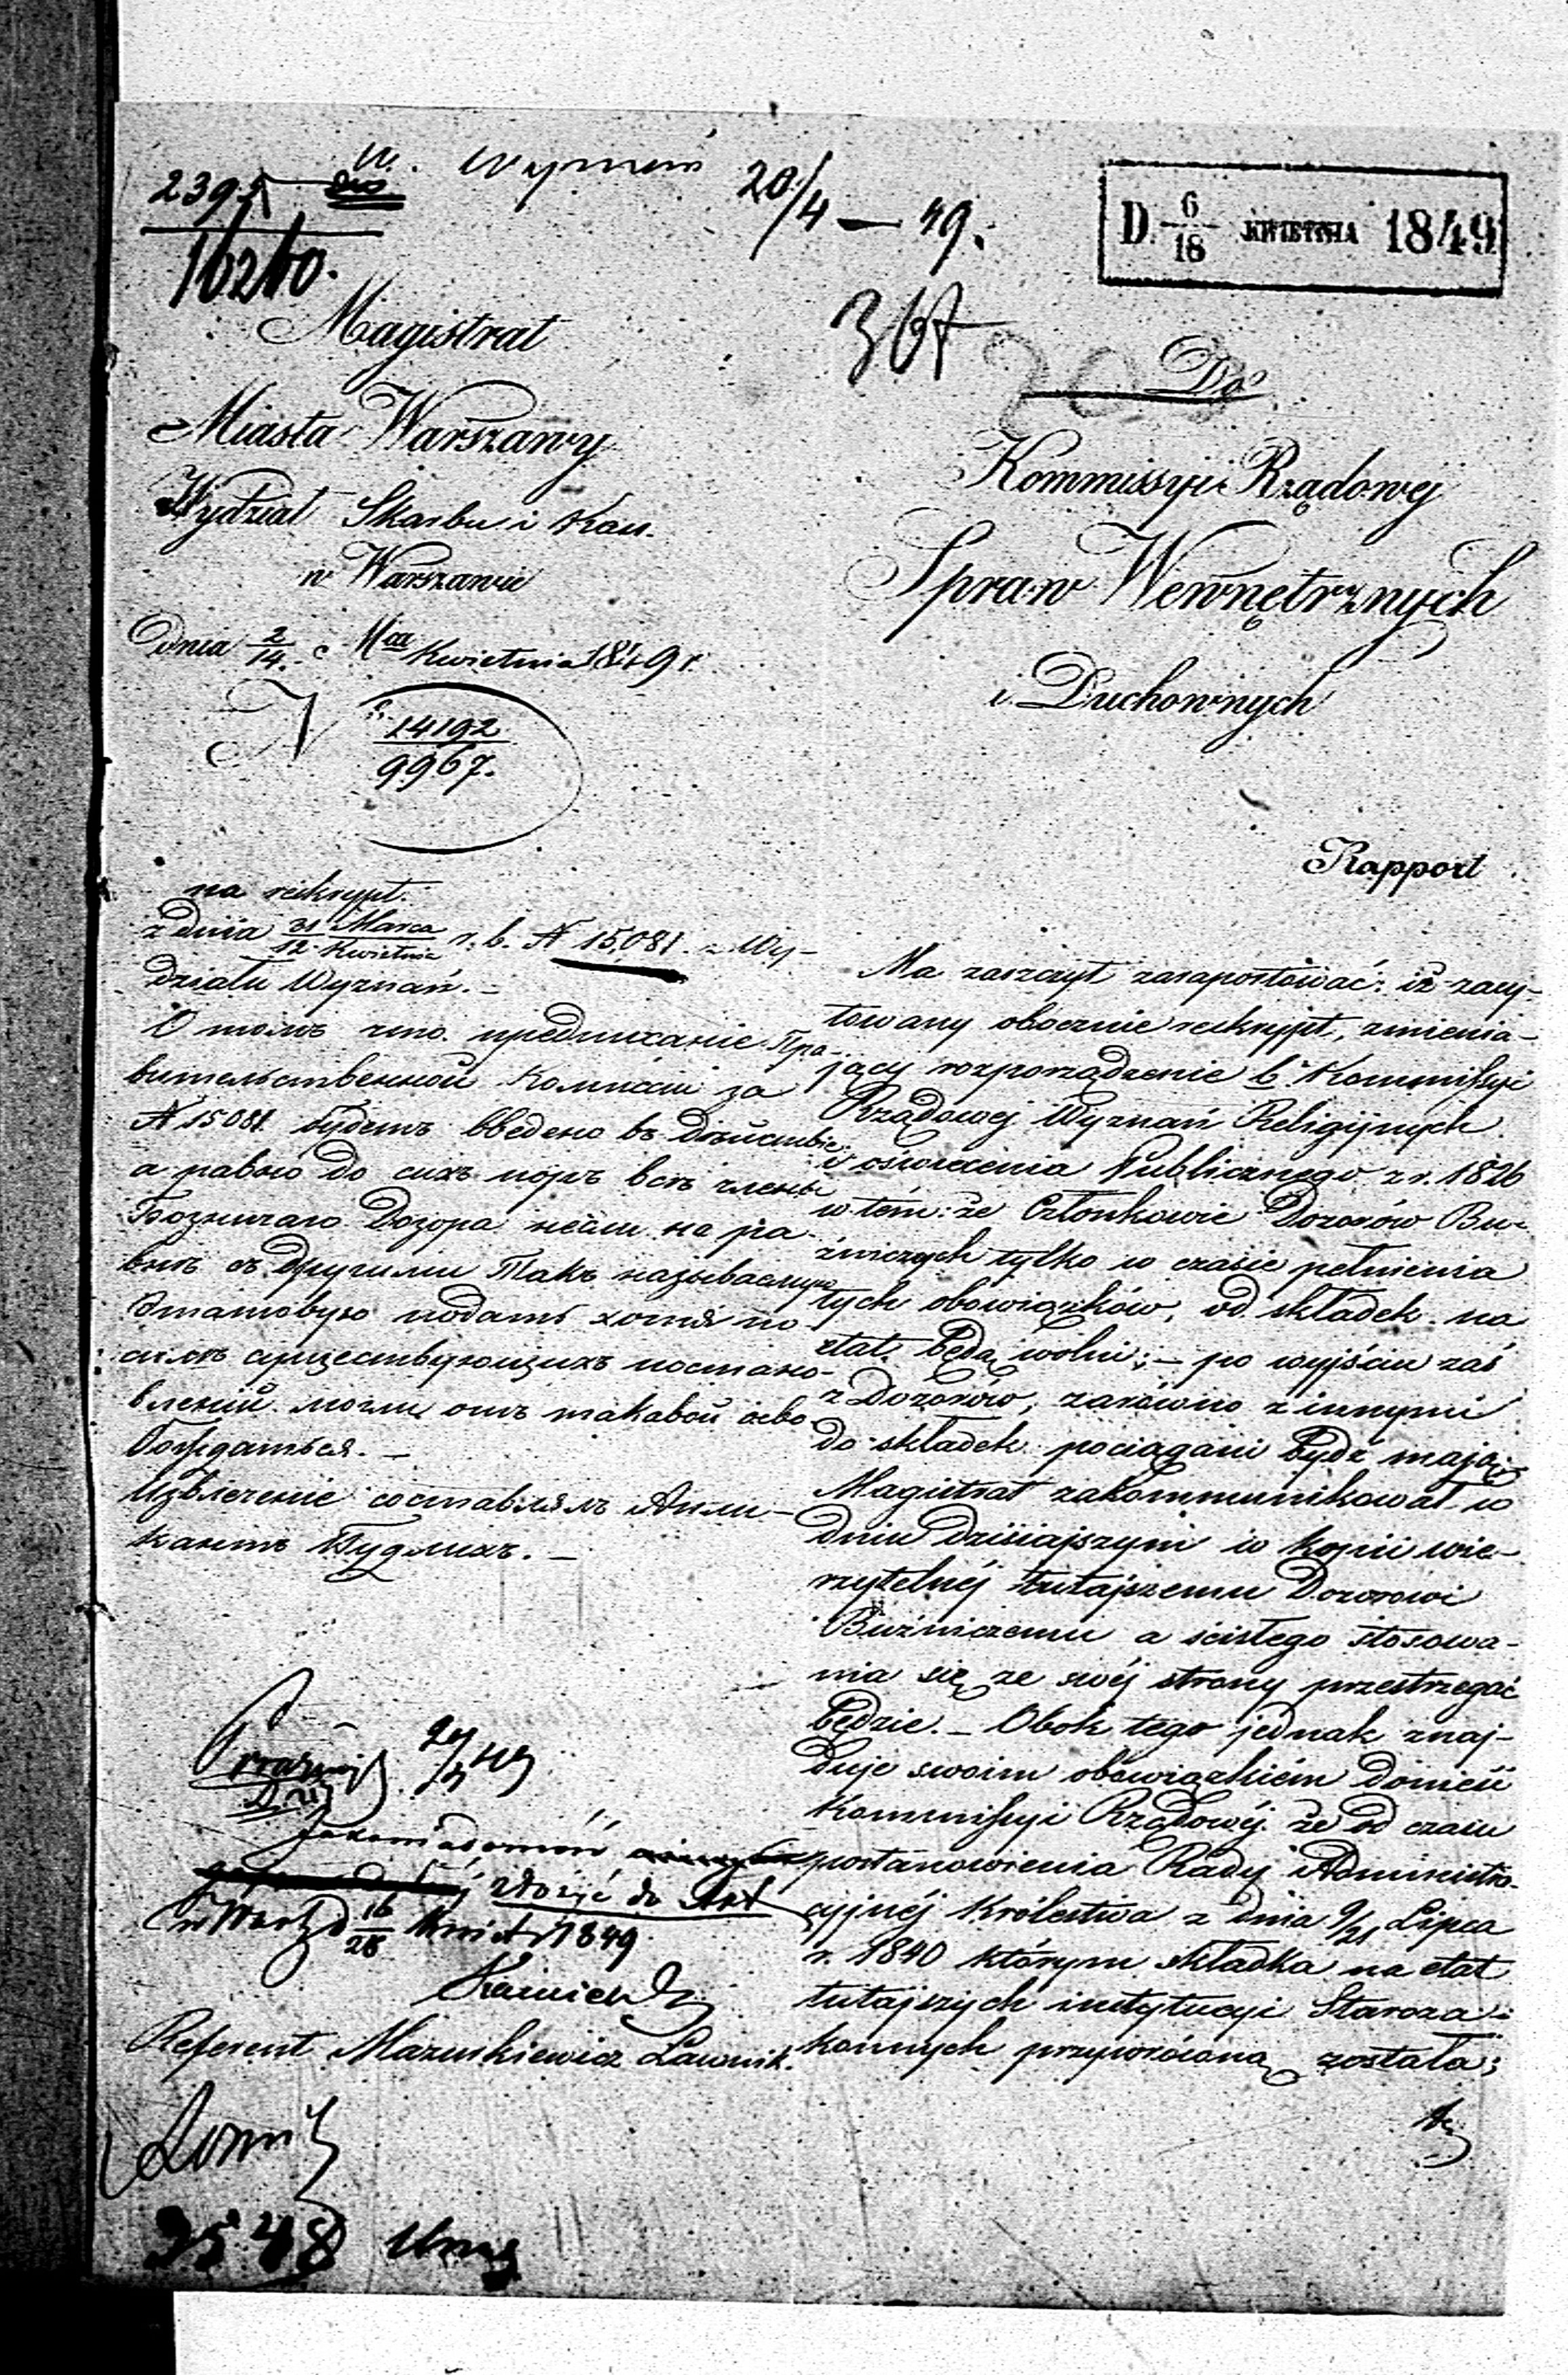 W. Wyznań 20/4 — 49.
2392
16240.
D. 6/18 KWIETNIA 1849
367
203
Magistrat
Miasta Warszawy
Wydział Skarbu i Kass.
w Warszawie
Dnia 2/14. Mca Kwietnia 1849 r.
N 14192/9967.
Do
Kommissyi Rządowej
Spraw Wewnętrznych
i Duchownych
Rapport
na reskrypt
z dnia 31 Marca/12 Kwietnia r. b. N 15,081. z Wy-
działu Wyznań. —
О томъ что предписаніе Пра-
вительственной Коммиссіи за
N 15081 будетъ введено въ дѣйствіе
а равно до сихъ поръ всѣ члены
Божничаго Дозора несли на ра-
внѣ съ другими такъ называемую
этатовую подать хотя по
силѣ существующихъ постано-
вленій могли отъ таковой осво-
бождаться. —
Извлеченіе составлялъ Апли-
кантъ —
Ma zaszczyt zaraportować: iż zacy-
towany obocznie reskrypt, zmienia-
jący rozporządzenie b. Kommissyi
Rządowej Wyznań Religijnych
i oświecenia Publicznego z r. 1826
w tém: że Członkowie Dozorów Bu-
źniczych tylko w czasie pełnienia
tych obowiązków, od składek na
etat będą wolni; — po wyjściu zaś
z Dozorów, zarówno z innymi
do składek pociągani bydź mają;
Magistrat zakommunikował w
dniu dzisiajszym w kopii wie-
rzytelnéj tutajszemu Dozorowi
Buźniczemu a ścisłego stosowa-
nia się ze swéj strony przestrzegać
będzie. — Obok tego jednak znaj-
duje swoim obowiązkiém donieść
Kommissyi Rządowéj że od czasu
postanowienia Rady Administra-
cyjnéj Królestwa z dnia 9/21 Lipca
r. 1840 którym składka na etat
tutajszych instytucyi Staroza-
konnych przywróconą została;
złożyć do Akt
w Warsz d 16/28 Kwiet 1849
Referent Mazurkiewicz Ławnik.
3548